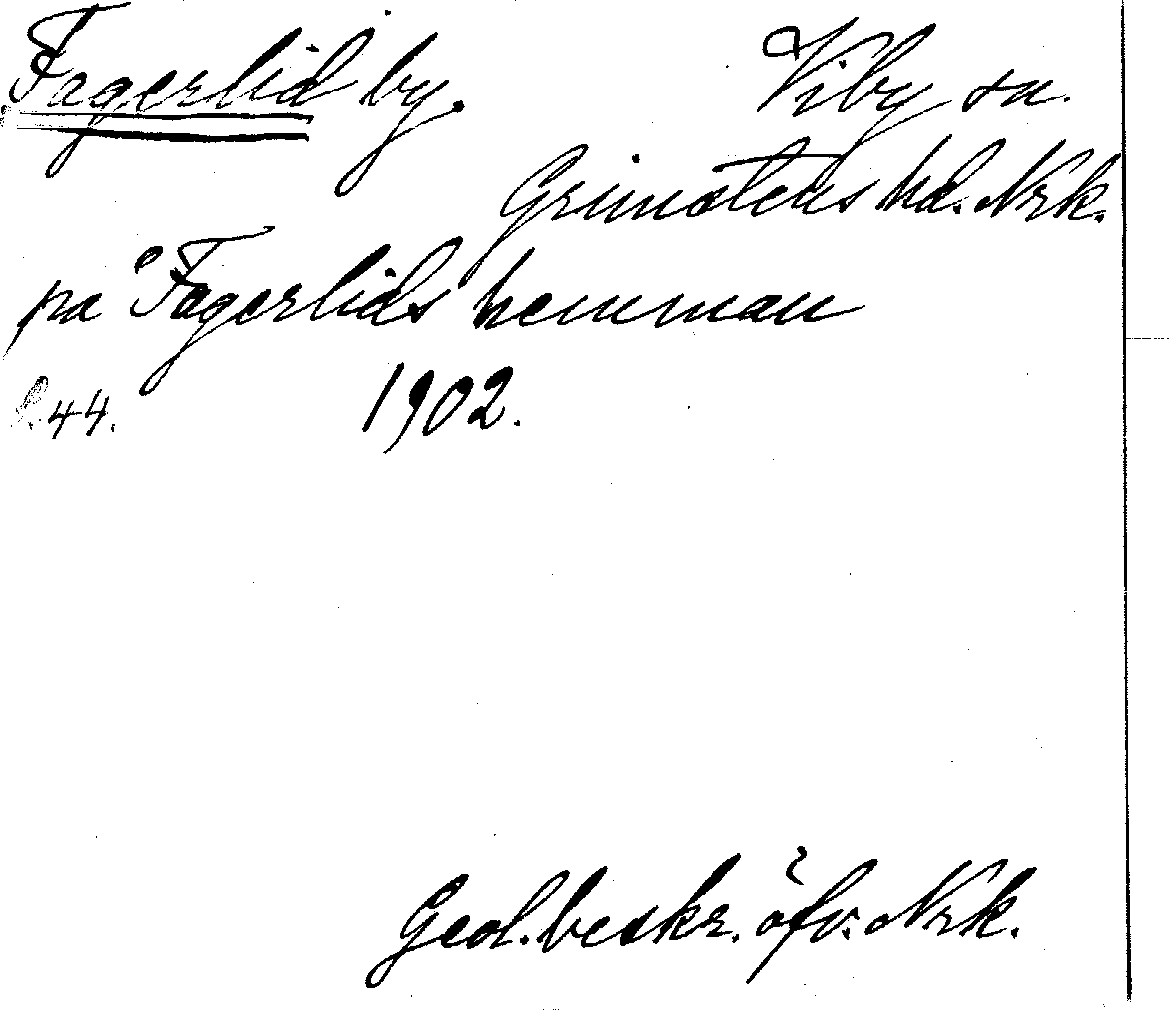 Fagerlid by. Viby sn.
Grimstens hd. Nrk.
på Fagerlids hemman
s. 44. 1902.
Geol. beskr. öfv. Nrk.